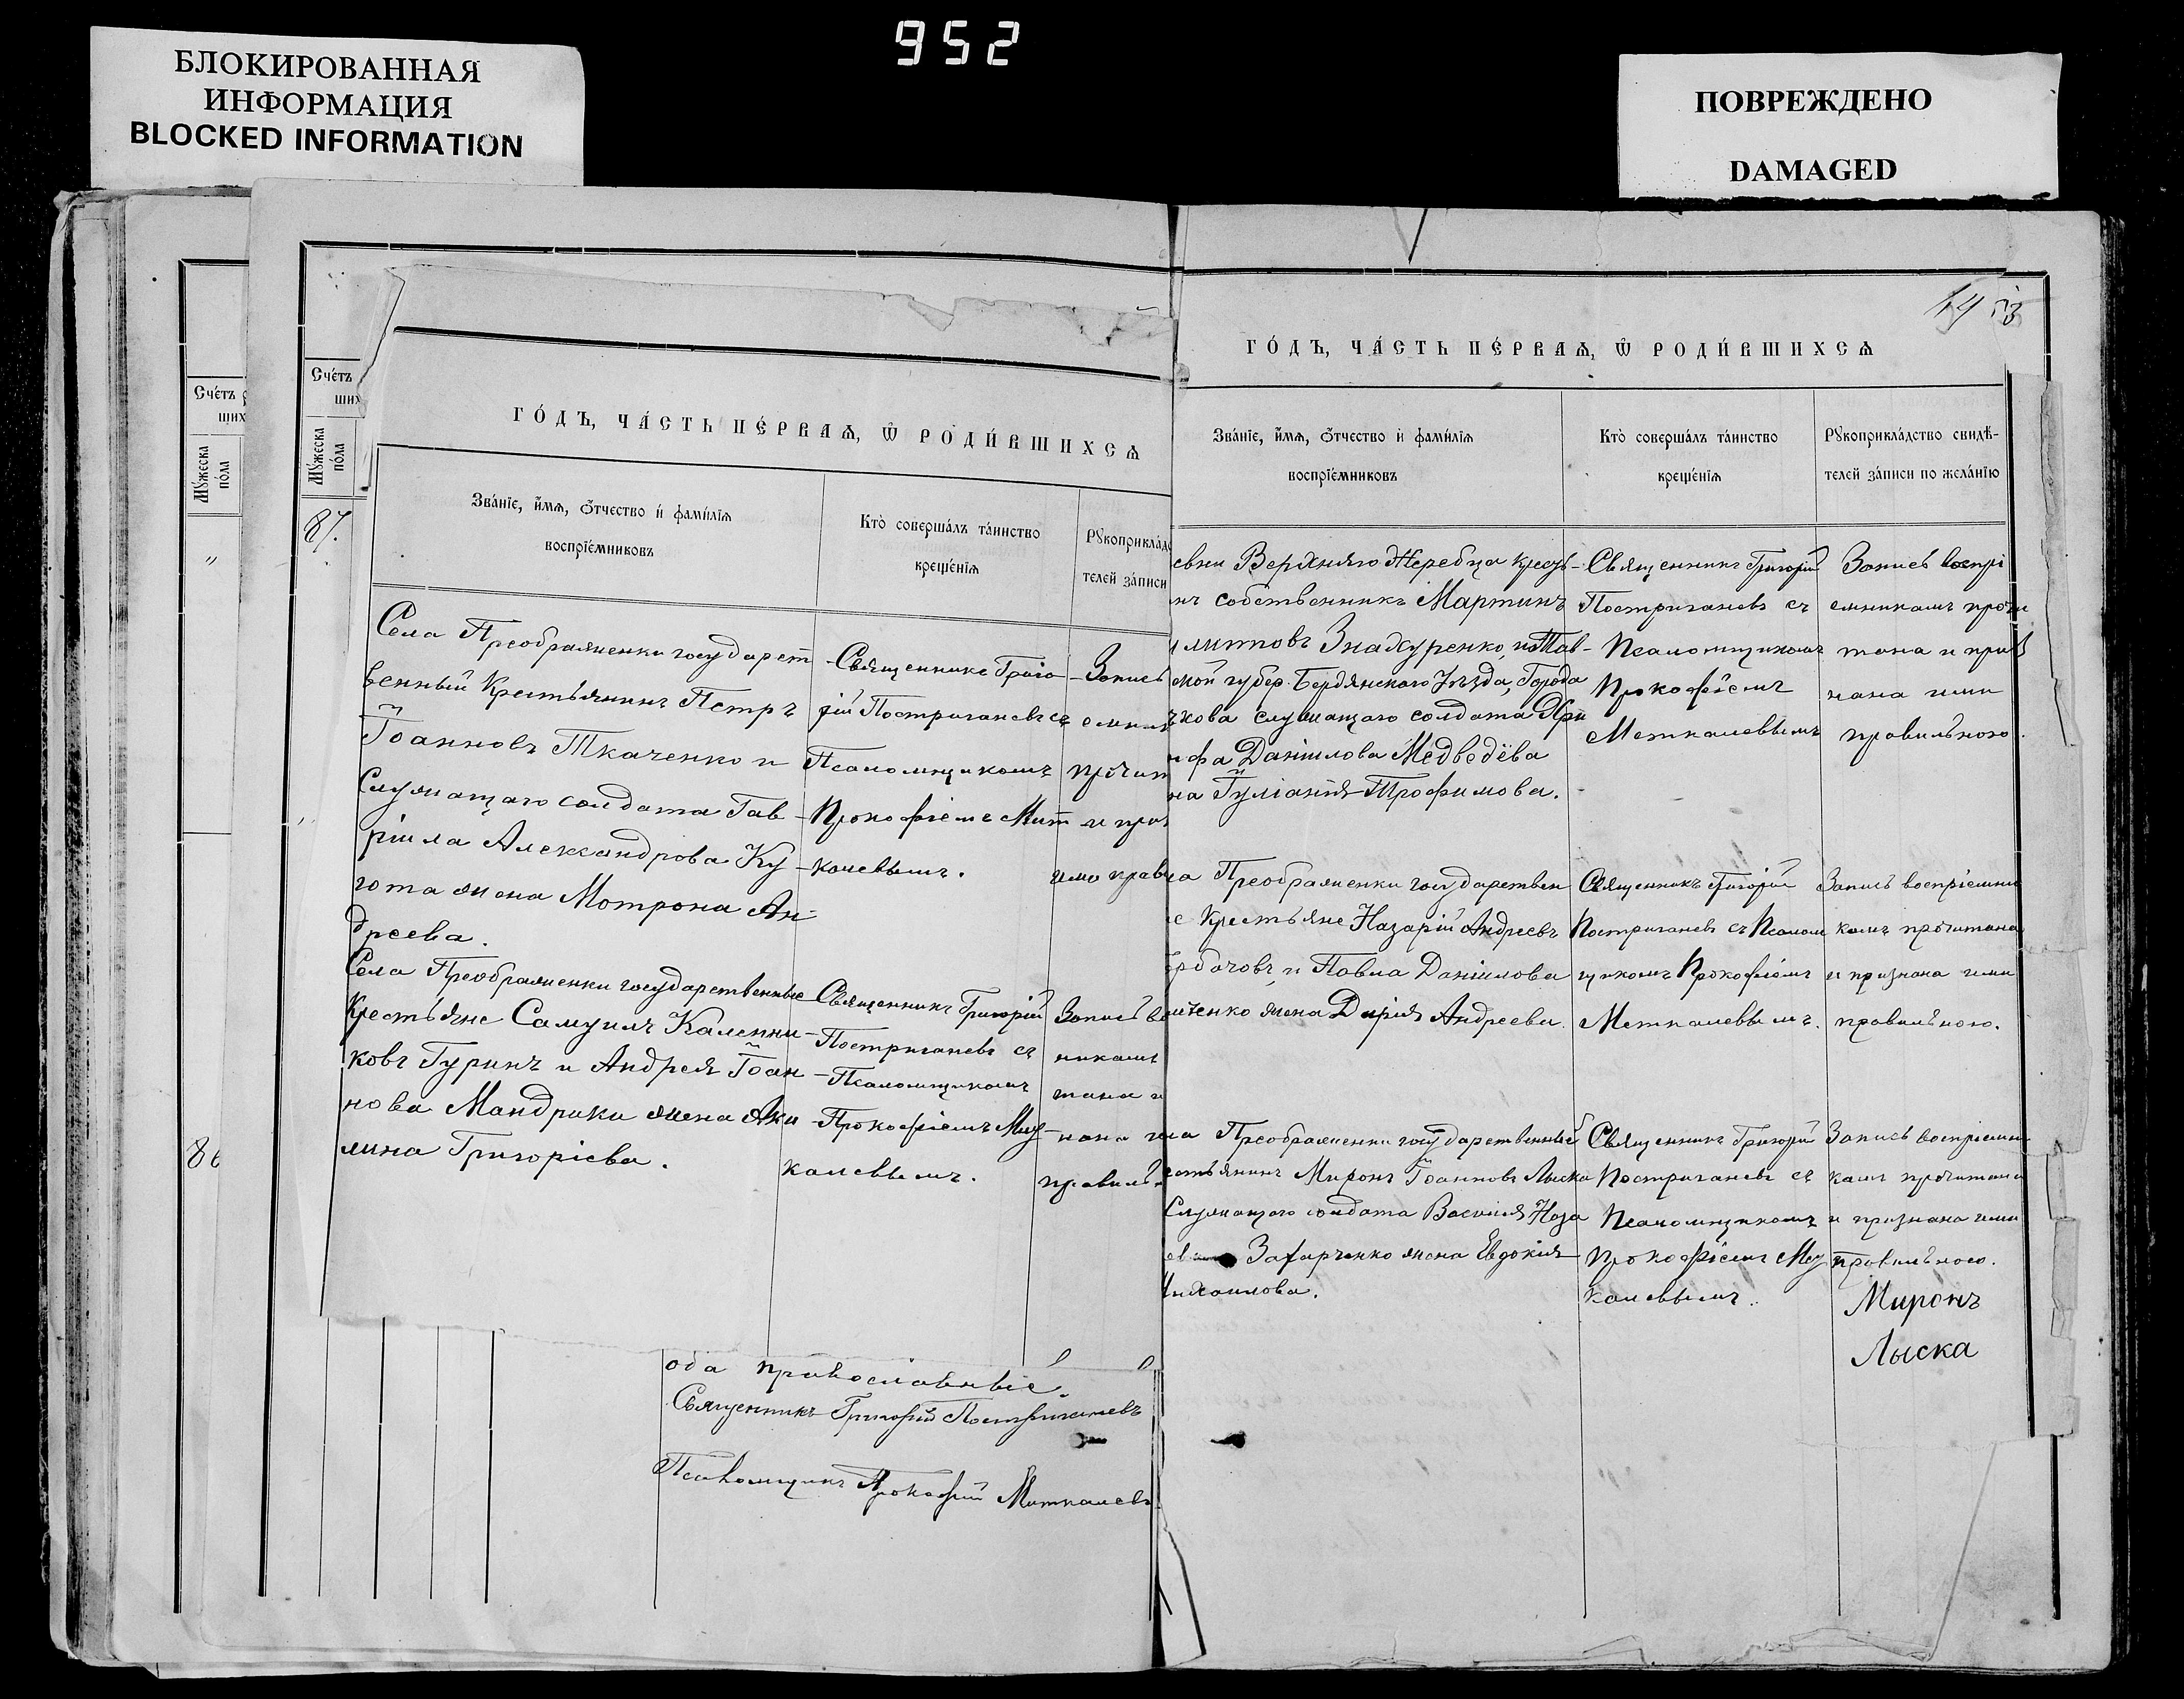 952
БЛОКИРОВАННАЯ
ИНФОРМАЦИЯ
BLOCKED INFORMATION
ПОВРЕЖДЕНО
DAMAGED
Счетъ
ших
Мужеска
пола
„
86
Счетъ
ших
Мужеска
пола
87.
годъ, часть первая, ѿ родившихся
Званіе, имя, отчество и фамилія
воспріемниковъ
Кто совершалъ таинство
крещенія
Рукоприкладс
телей записи
Села Преображенки государст
венный Крестьянинъ Петръ
Іоанновъ Ткаченко и
Служащаго солдата Гав-
ріила Александрова Ку-
гота жена Мотрона Ан-
дреева.
Священникъ Григо-
рій Постригачевъ съ
Псаломщикомъ
Прокофіемъ Мит
калевымъ.
Запись
емник
прочит
и при
ими прави
Села Преображенки государственные
Крестьяне Самуилъ Каленни-
ковъ Гуринъ и Андрея Іоан-
нова Мандрики жена Аки
лина Григоріева.
Священникъ Григорій
Постригачевъ съ
Псаломщикомъ
Прокофіемъ
калевымъ.
Запись во
никамъ
тана и
нана
правиль
оба православные.
Священникъ Григорій Постригачевъ
Псаломщикъ Прокофій Миткалевъ
годъ, часть первая, ѿ родившихся
Званіе, имя, отчество и фамилія
воспріемниковъ
Кто совершалъ таинство
крещенія
Рукоприкладство свидѣ-
телей записи по желанію
евни Верхняго Жеребца крест-
нъ собственникъ Мартинъ
литовъ Знахуренко, и Тав-
ской губер. Бердянскаго Уѣзда, Города
хова служащаго солдата
ифа Даніилова Медведёва
на Іуліанія Трофимова.
Священникъ Григорій
Постригачевъ съ
Псаломщикомъ
Прокофіемъ
Меткалевымъ
Запись воспрі
емникамъ прочи
тана и приз
нана ими
правильною.
ла Преображенки государствен
е Крестьяне Назарій Андреевъ
рбачовъ, и Павла Даніилова
ченко жена Дарія Андреева.
Священникъ Григорій
Постригачевъ съ Псалом
щикомъ Прокофіемъ
Меткалевымъ.
Запись воспріемни
камъ прочитана
и признана ими
правильною.
ла Преображенки государственный
естьянинъ Миронъ Іоанновъ Лыска
Служащаго солдата Василія Наза
Захарченко жена Евдокія
Михаилова.
Священникъ Григорій
Постригачевъ съ
Псаломщикомъ
Прокофіемъ
калевымъ.
Запись воспріемни
камъ прочитана
и признана ими
правильною.
Миронъ
Лыска